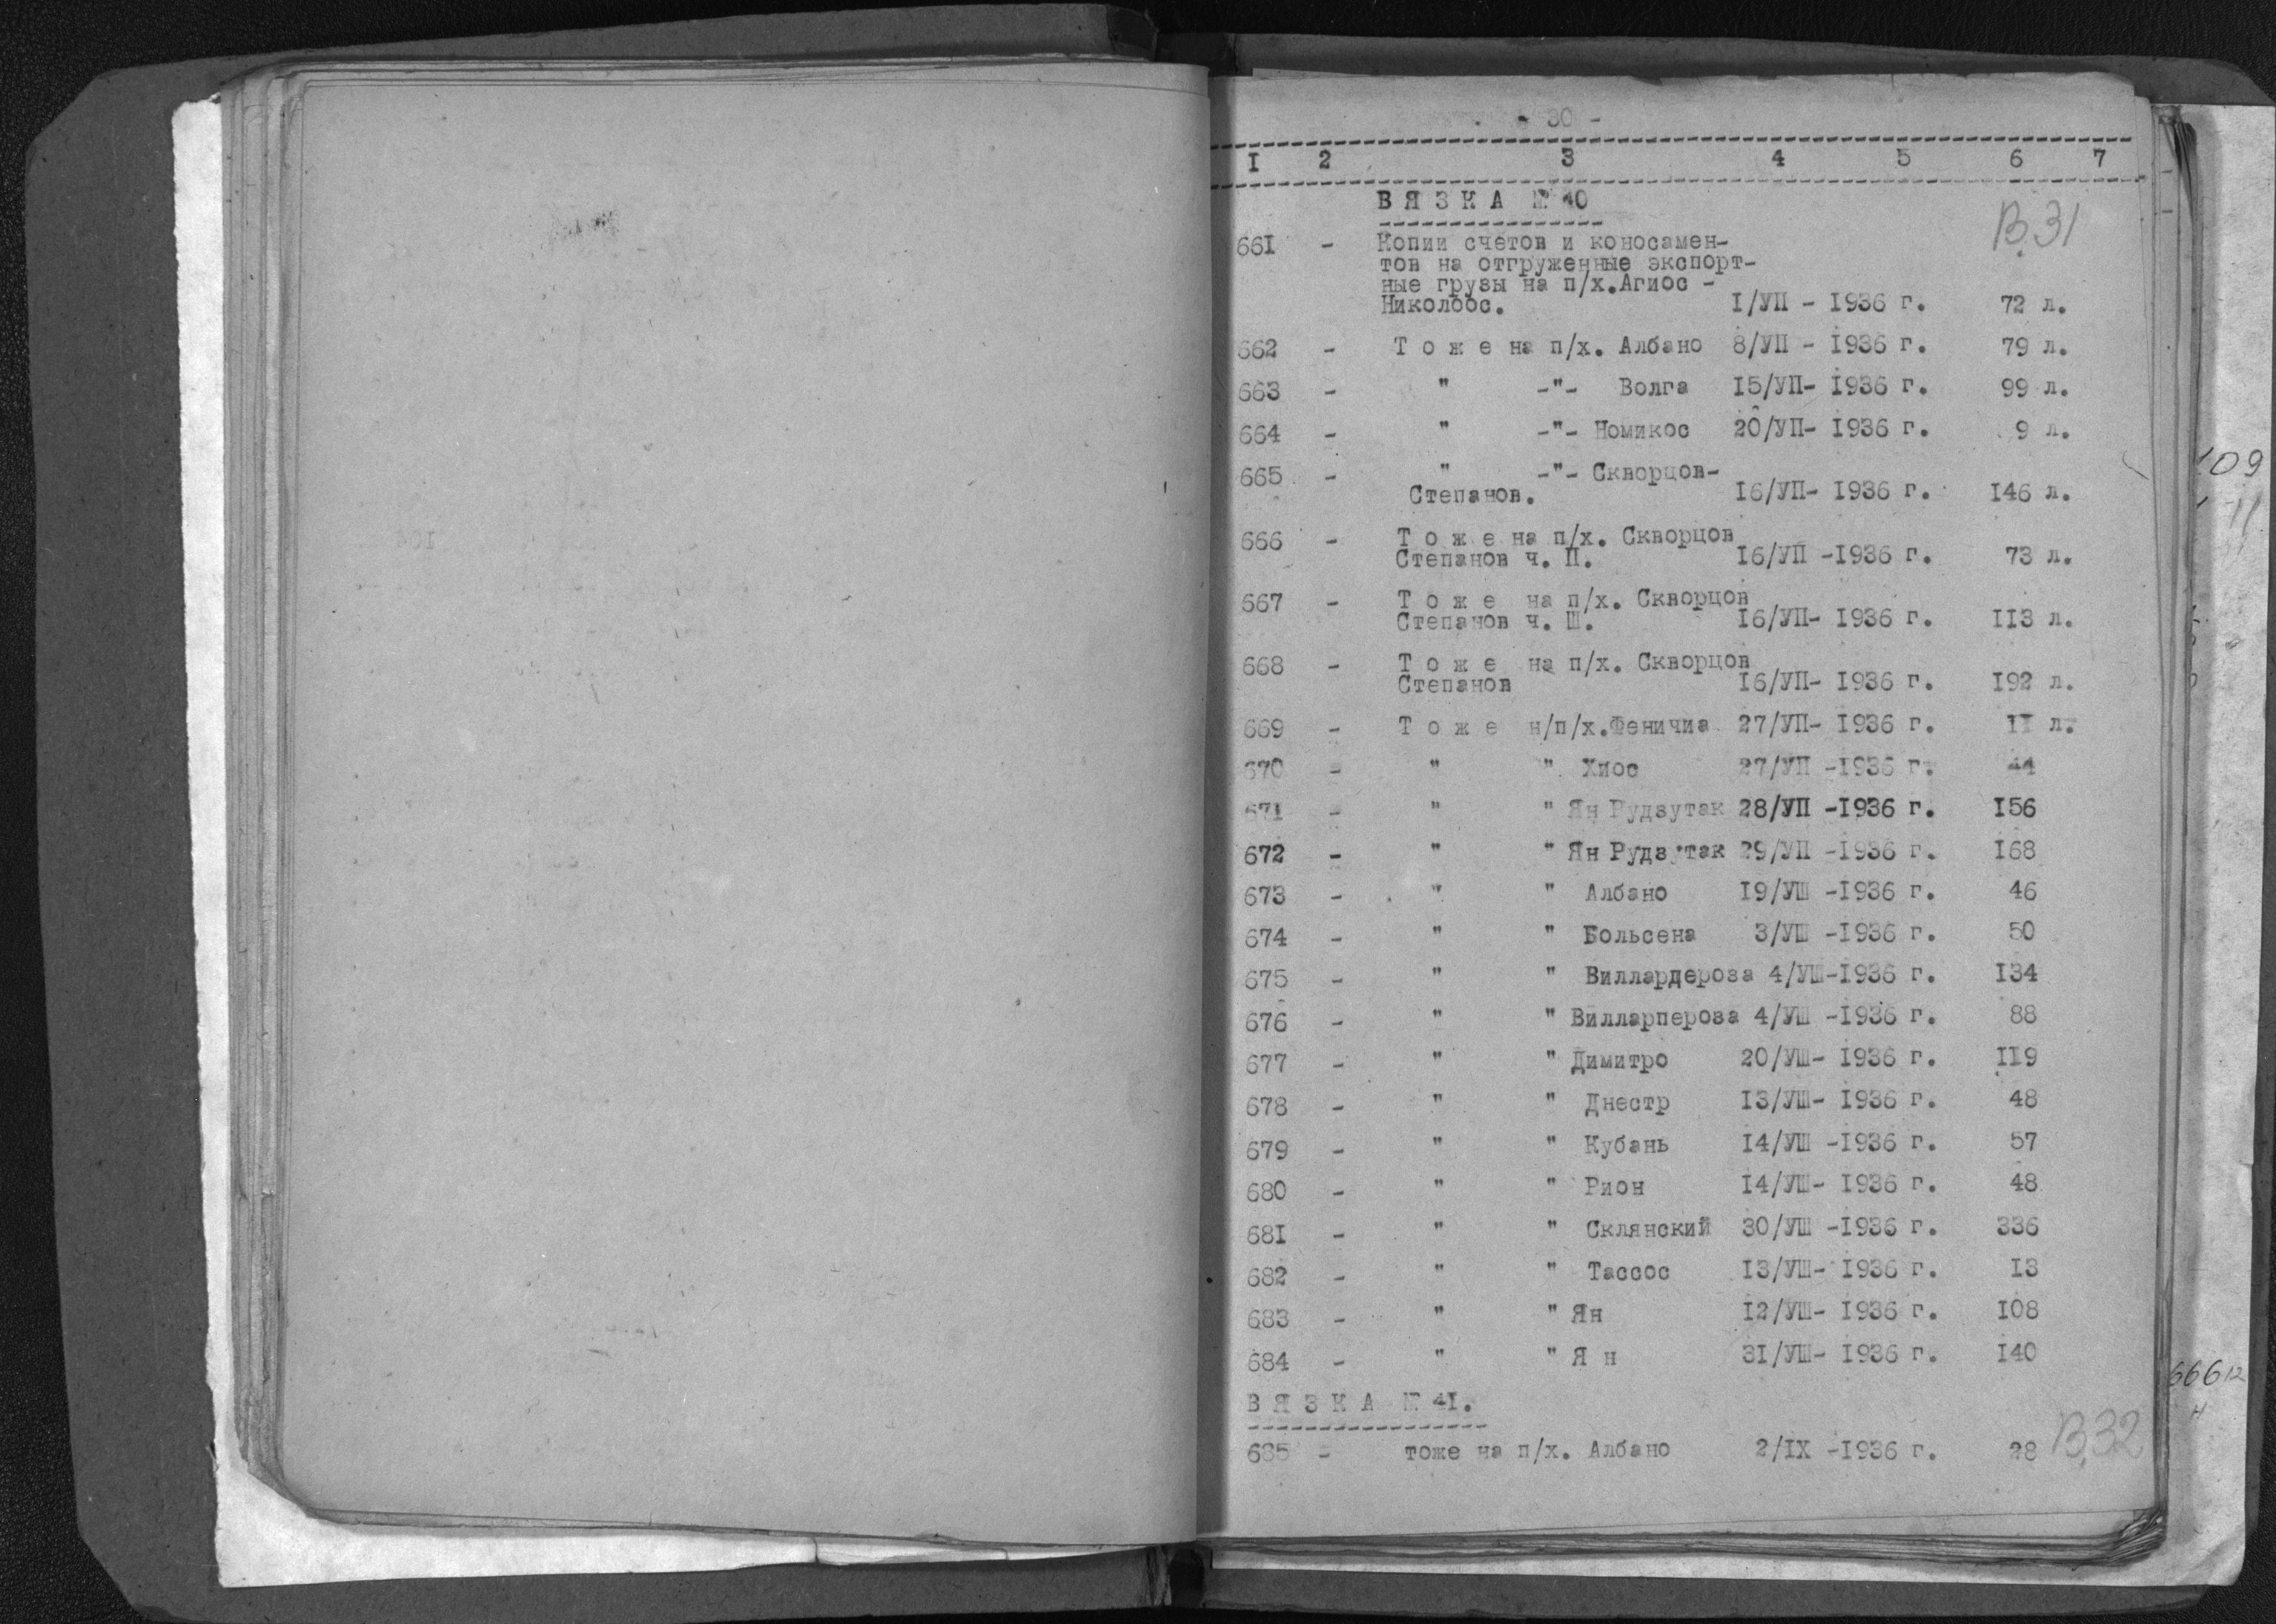 - 30 -
I 2 3 4 5 6 7
В Я З К А № 40
В.31
661 - Копии счетов и коносамен-
тов на отгруженные экспорт-
ные грузы на п/х.Агиос -
Николоос. I/УП - I936 г. 72 л.
662 - Т о ж е на п/х. Албано 8/УП - I936 г. 79 л.
663 - " -"- Волга I5/УП- I936 г. 99 л.
664 - " -"- Номикос 20/УП- I936 г. 9 л.
665 - " -"- Скворцов-
Степанов. I6/УП- I936 г. I46 л.
666 - Т о ж е на п/х. Скворцов
Степанов ч. П. I6/УП -I936 г. 73 л.
667 - Т о ж е на п/х. Скворцов
Степанов ч. Ш. I6/УП- I936 г. II3 л.
668 - Т о ж е на п/х. Скворцов
Степанов I6/УП- I936 г. I92 л.
669 - Т о ж е н/п/х.Феничиа 27/УП- I936 г. II л.
670 - " " Хиос 27/УП -I936 г. 44
671 - " " Ян Рудзутак 28/УП -I936 г. I56
672 - " " Ян Рудзутак 29/УП -I936 г. I68
673 - " " Албано I9/УШ -I936 г. 46
674 - " " Больсена 3/УШ -I936 г. 50
675 - " " Виллардероза 4/УШ-I936 г. I34
676 - " " Вилларпероза 4/УШ -I936 г. 88
677 - " " Димитро 20/УШ- I936 г. II9
678 - " " Днестр I3/УШ- I936 г. 48
679 - " " Кубань I4/УШ -I936 г. 57
680 - " " Рион I4/УШ- I936 г. 48
681 - " " Склянский 30/УШ -I936 г. 336
682 - " " Тассос I3/УШ- I936 г. I3
683 - " " Ян I2/УШ- I936 г. I08
684 - " " Я н 3I/УШ- I936 г. I40
В Я З К А № 4I.
685 - тоже на п/х. Албано 2/IX -I936 г. 28
В.32
109